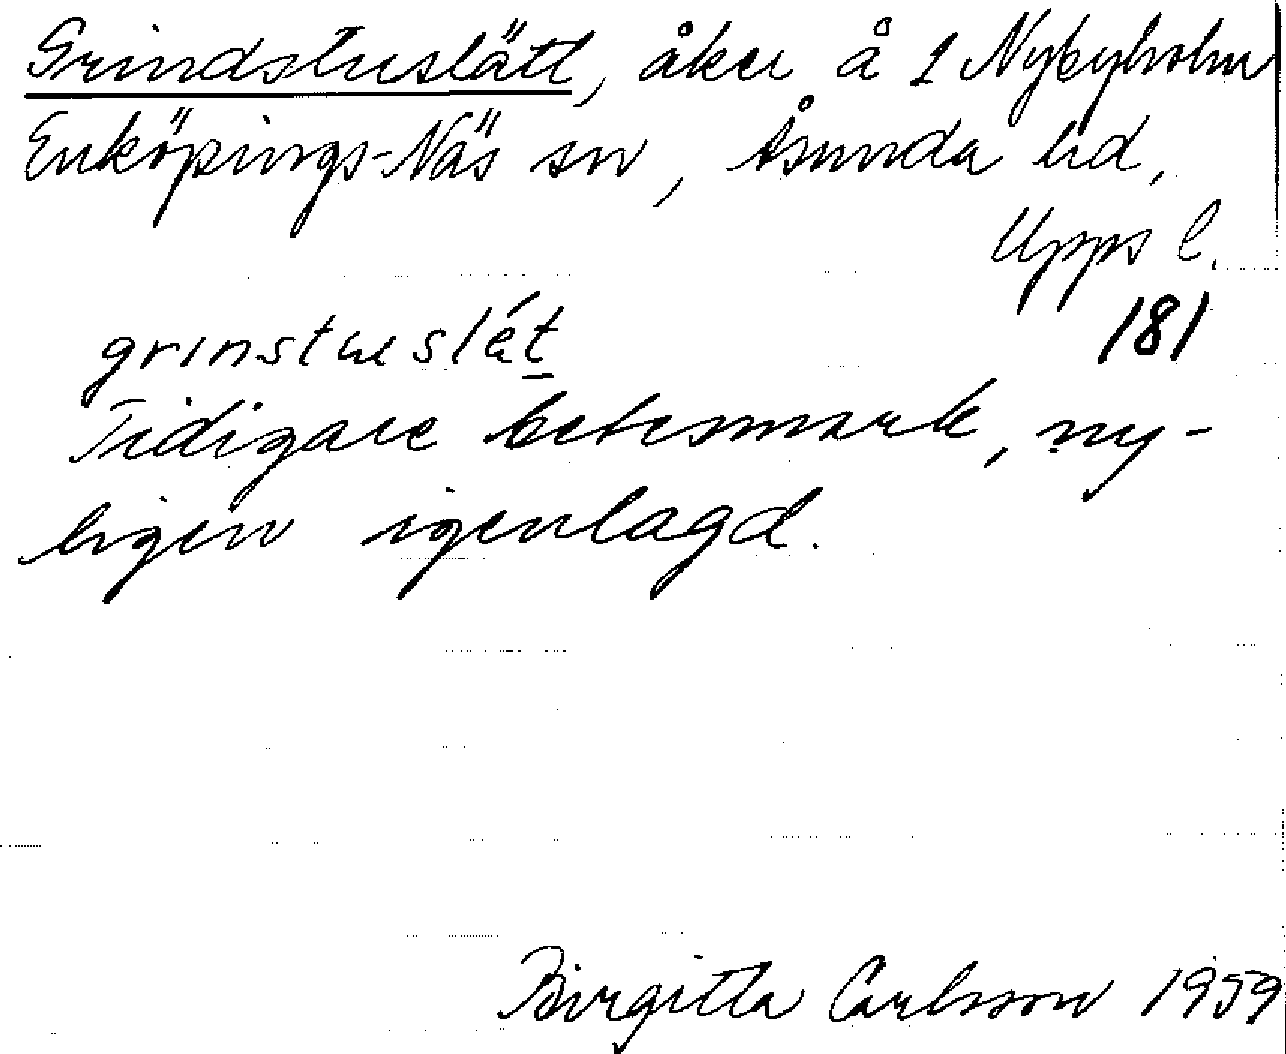 Grindstuslätt, åker å 1 Nybyholm
Enköpings-Näs sn, Åsunda hd,
Upps l.
181
grinstuslét
Tidigare betesmark, ny-
ligen igenlagd.
Birgitta Carlsson 1959